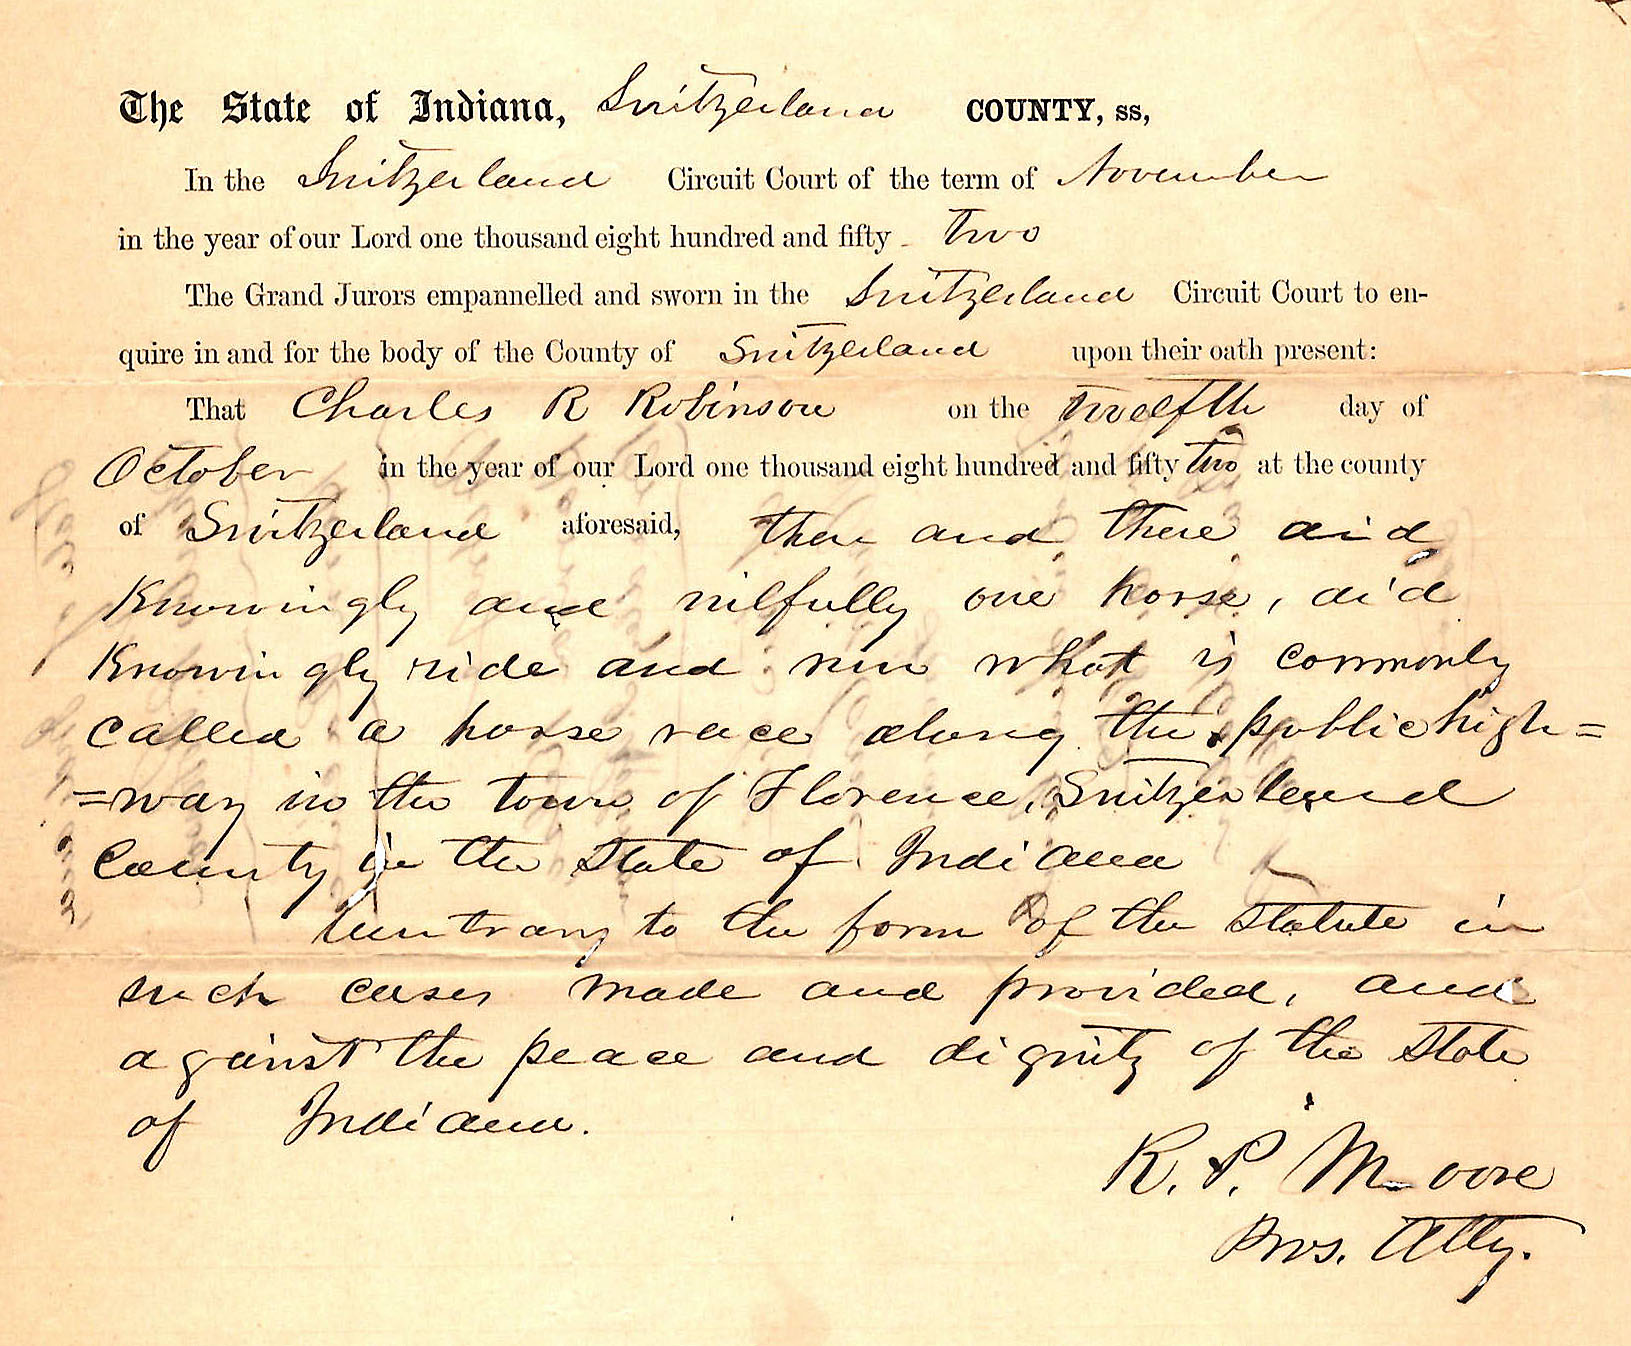 The State of Indiana, Switzerland COUNTY, ss,
In the Switzerland Circuit Court of the term of November
in the year of our Lord one thousand eight hundred and fifty - two
The Grand Jurors empannelled and sworn in the Switzerland Circuit Court to en-
quire in and for the body of the County of Switzerland upon their oath present:
That Charles R Robinson on the twelfth day of
October in the year of our Lord one thousand eight hundred and fifty two at the county
of Switzerland aforesaid, then and there did
Knowingly and wilfully one horse, did
Knowingly ride and run what is commonly
called a horse race along the public high=
=way in the town of Florence, Switzerland
County in the State of Indiana
Contrary to the form of the statute in
such cases made and provided, and
against the peace and dignity of the State
of Indiana.
R. P. Moore
Pros. Atty.